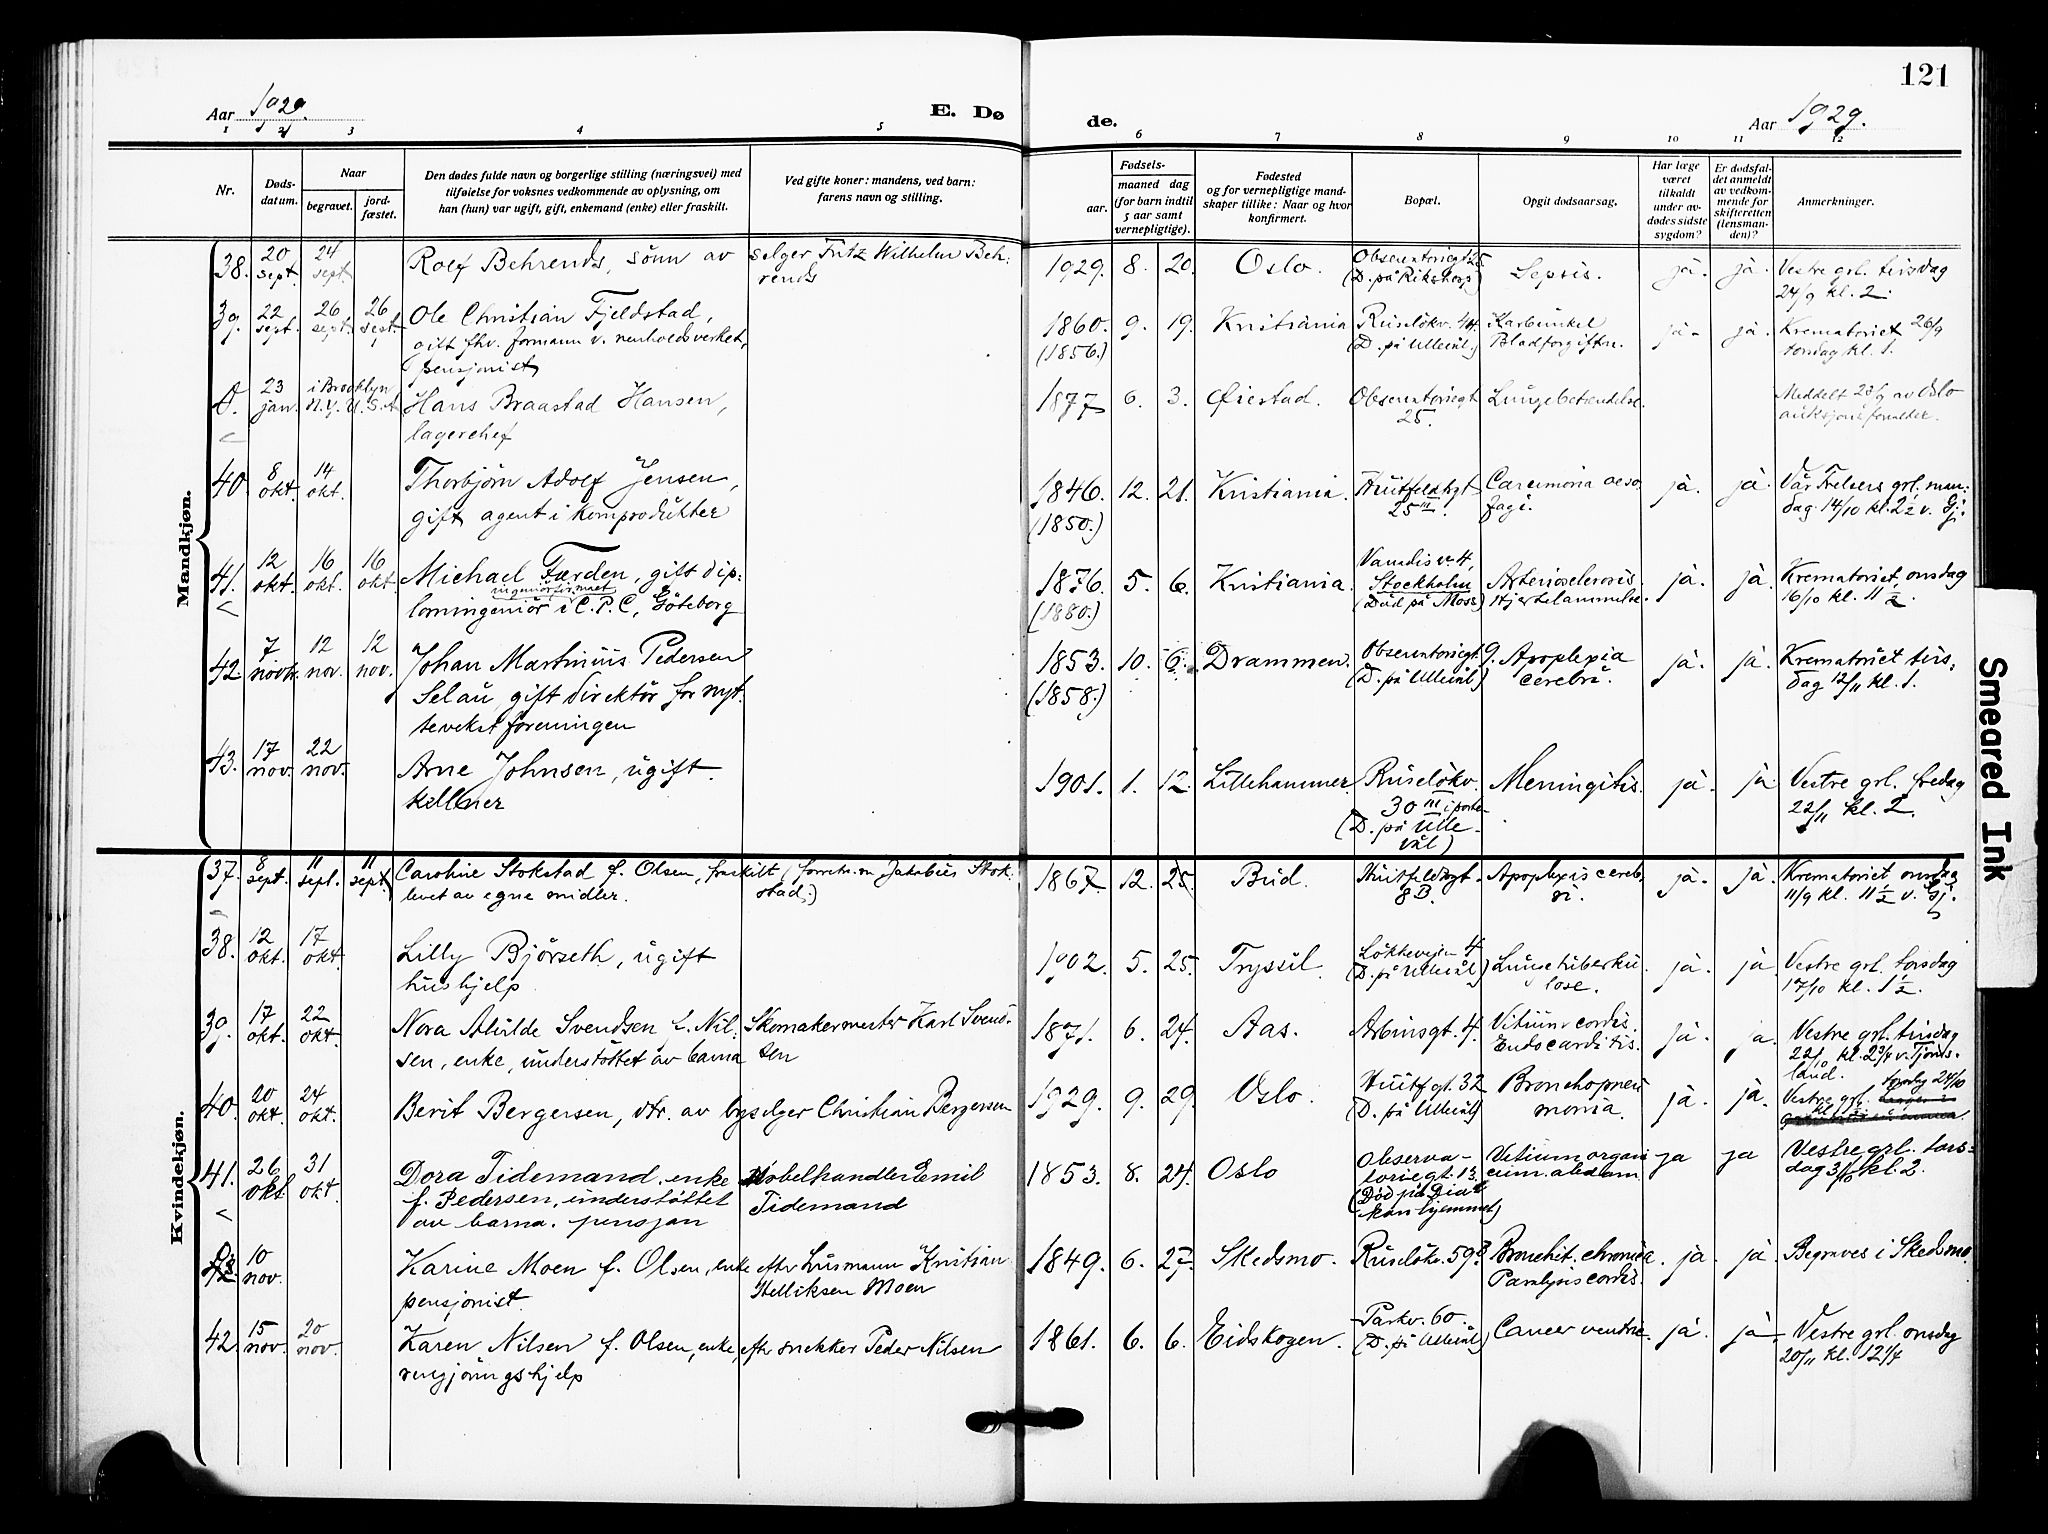 121
Aar 1929.
E. Dø
de.
Aar 1929.
1 2 3 4 5 6 7 8 9 10 11 12
Nr.
Døds-
datum.
Naar
begravet.
jord-
fæstet.
Den dødes fulde navn og borgerlige stilling (næringsvei) med
tilføielse for voksnes vedkommende av oplysning, om
han (hun) var ugift, gift, enkemand (enke) eller fraskilt.
Ved gifte koner: mandens, ved barn:
farens navn og stilling.
Fødsels-
aar.
maaned dag
(for barn indtil
5 aar samt
vernepligtige).
Fødested
og for vernepligtige mand-
skaper tillike: Naar og hvor
konfirmert.
Bopæl.
Opgit dødsaarsag.
Har læge
været
tilkaldt
under av-
dødes sidste
sygdom?
Er dødsfal-
det anmeldt
av vedkom-
mende for
skifteretten
(lensman-
den)?
Anmerkninger.
Mandkjøn.
38. 20 sept. 24 sept. Rolf Behrends, sønn av selger Fritz Wilhelm Beh-
rends
1929. 8. 20. Oslo. Observatoriegt. 25 (D. på Rikshosp.) Sepsis. ja. ja. Vestre grl. tirsdag
24/9 kl. 2.
39. 22 sept. 26 sept. 26 sept. Ole Christian Fjeldstad,
gift fhv. formann v. renholdsverket,
pensjonist
1860. (1856.) 9. 19. Kristiania Ruseløkv. (D. på Ullevål.) Karbunkel
Blodforgiftn. ja. ja. Krematoriet 26/9
torsdag kl. 1.
0. 23 jan. i Brooklyn
N.Y. U.S.A Hans Braastad Hansen,
lagerchef
1877 6. 3. Øiestad. Observatoriegt
25. Lungebetendelse. Meddelt av Oslo
auksjonsforvalter.
40. 8 okt. 14 okt. Thorbjørn Adolf Jensen,
gift agent i kornprodukter
1846. (1850.) 12. 21. Kristiania. Huitfeldtgt
25 III. Carcinoma oeso
fagi. ja. ja. Vår Frelsers grl. man-
dag 14/10 kl. 2 1/2 v. Gj.
41. 12 okt. 16 okt. 16 okt. Michael Færden, gift dip-
ingeniørfirmaet
lomingeniør i C.P.C, Göteborg
1876. (1880.) 5. 6. Kristiania. Vanadisv. 4,
Stockholm
(Död på Moss) Arteriosclerosis.
Hjertelammelse. ja. ja. Krematoriet, onsdag
16/10 kl. 11 1/2.
42 7 novbr. 12 nov. 12 nov. Johan Martinius Pedersen
Selau, gift direktör for nyt-
tevekstforeningen
1853. (1858.) 10. 6. Drammen. Observatoriegt. 9.
(D. på Ullevål) Apoplexia
cerebri. ja. ja. Krematoriet tirs-
dag 12/11 kl. 1.
43. 17 nov. 22 nov. Arne Johnsen, ugift.
kellner
1901. 1. 12. Lillehammer. Ruseløkv.
30 III i porte
(D. på Ulle-
vål) Meningitis. ja. ja Vestre grl. fredag
22/11 kl. 2.
Kvindekjøn.
37. 8 sept. 11 sept. 11 sept. Caroline Stokstad f. Olsen, fraskilt (forretn.m Jakobus Stok-
levet av egne midler. stad.)
1867. 12. 25. Bud. Huitfeldtgt.
8 B. Apoplexis cereb
ri. ja. ja. Krematoriet onsdag
11/9 kl. 11 1/2 v. Gj.
38. 12 okt. 17 okt. Lilly Björseth, ugift
hushjelp
1902. 5. 25. Trysil. Løkkeveien 4
(D. på Ullevål) Lungetuberku
lose. ja. ja Vestre grl. torsdag
17/10 kl. 1 1/2.
39. 17 okt. 22 okt. Nora Alvilde Svendsen f. Nil- Skomakermester Karl Svend-
sen, enke, understöttet av barna sen
1871. 6. 24. Aas. Arbinsgt. 4. Vitium cordis.
Endocarditis. ja. ja. Vestre grl. tirsdag
22/10 kl. 2 3/4 v. Tjönds-
land.
40. 20 okt. 24 okt. Berit Bergersen, dtr. av byselger Christian Bergersen
1929. 9. 29. Oslo. Huitf gt. 32
(D. på Ullevål) Bronchopneu
monia. ja. ja. torsdag 24/10
Vestre grl.
41. 26 okt 31 okt. Dora Tidemand, enke Møbelhandler Emil
f. Pedersen, understöttet Tidemand
av barna. pensjon
1853. 8. 24. Oslo Observa-
toriegt. 13.
(Död på Dia-
konhjemmet) Vitium organi
cum. ja ja Vestre grl. tors-
dag 31/10 kl. 2.
10 nov. Karine Moen f. Olsen, enke efter husmann Kristian
pensjonist. Helliksen Moen
1849. 6. 27. Skedsmo. Ruseløkv. 59 Bronchit. chronica
Paralysis cordis. ja. ja Begraves i Skedsmo.
42. 15 nov. 20 nov. Karen Nilsen f. Olsen, enke, efter snekker Peder Nilsen
rengjöringshjelp
1861. 6. 6. Eidskogen. Parkv. 60.
(D. på Ullevål) Cancer ventric. ja. ja. Vestre grl. onsdag
20/11 kl. 12 1/4
Smeared Ink